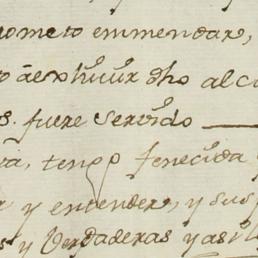 ometo emmendar,
dho alca
s. fuere servido
tengo fenecida
y entender, y sus
s y Verdaderas y asi l